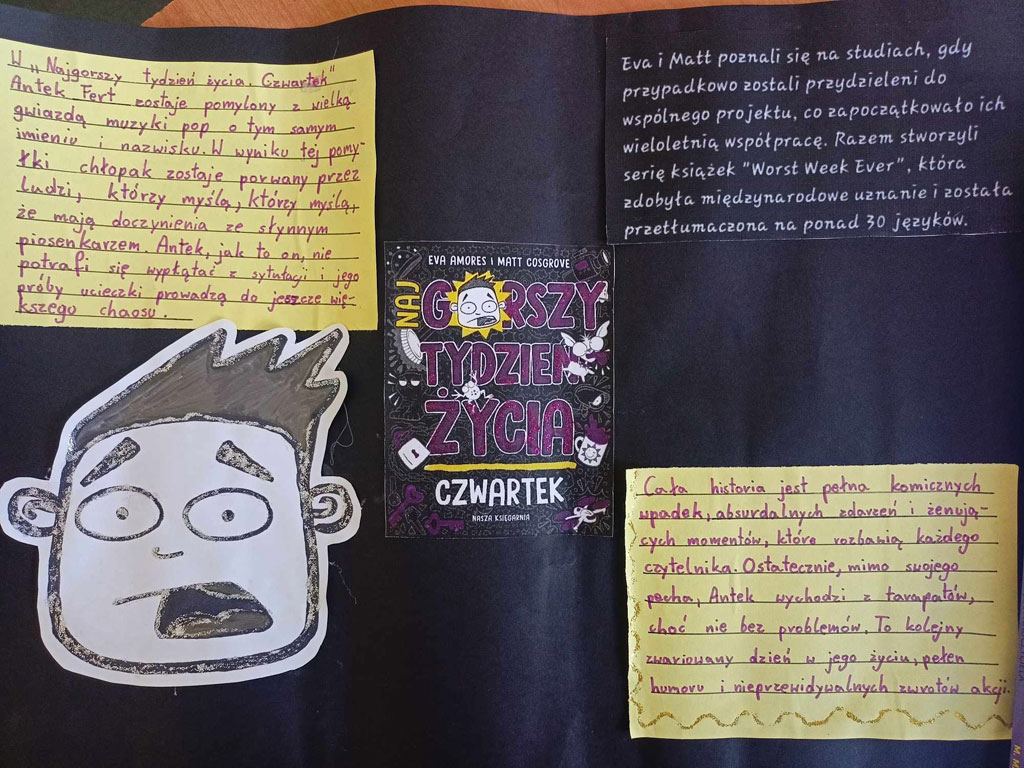 W „Najgorszy tydzień życia. Czwartek"
Antek Fert zostaje pomylony z wielką
gwiazdą muzyki pop o tym samym
imieniu i nazwisku. W wyniku tej pomy-
łki chłopak zostaje porwany przez
ludzi, którzy myślą, którzy myślą,
że mają doczynienia ze słynnym
piosenkarzem. Antek, jak to on, nie
potrafi się wyplątać z sytułacji i jego
próby ucieczki prowadzą do jeszcze wię-
kszego chaosu.
Eva i Matt poznali się na studiach, gdy
przypadkowo zostali przydzieleni do
wspólnego projektu, co zapoczątkowało ich
wieloletnią współpracę. Razem stworzyli
serię książek "Worst Week Ever", która
zdobyła międzynarodowe uznanie i została
przetłumaczona na ponad 30 języków.
EVA AMORES I MATT COSGROVE
NAJ
GORSZY
TYDZIEŃ
ŻYCIA
CZWARTEK
NASZA KSIĘGARNIA
Cała historia jest pełna komicznych
wpadek, absurdalnych zdarzeń i żenują-
cych momentów, które rozbawią każdego
czytelnika. Ostatecznie, mimo swojego
pecha, Antek wychodzi z tarapatów,
choć nie bez problemów. To kolejny
zwariowany dzień w jego życiu, pełen
humoru i nieprzewidywalnych zwrotów akcji.